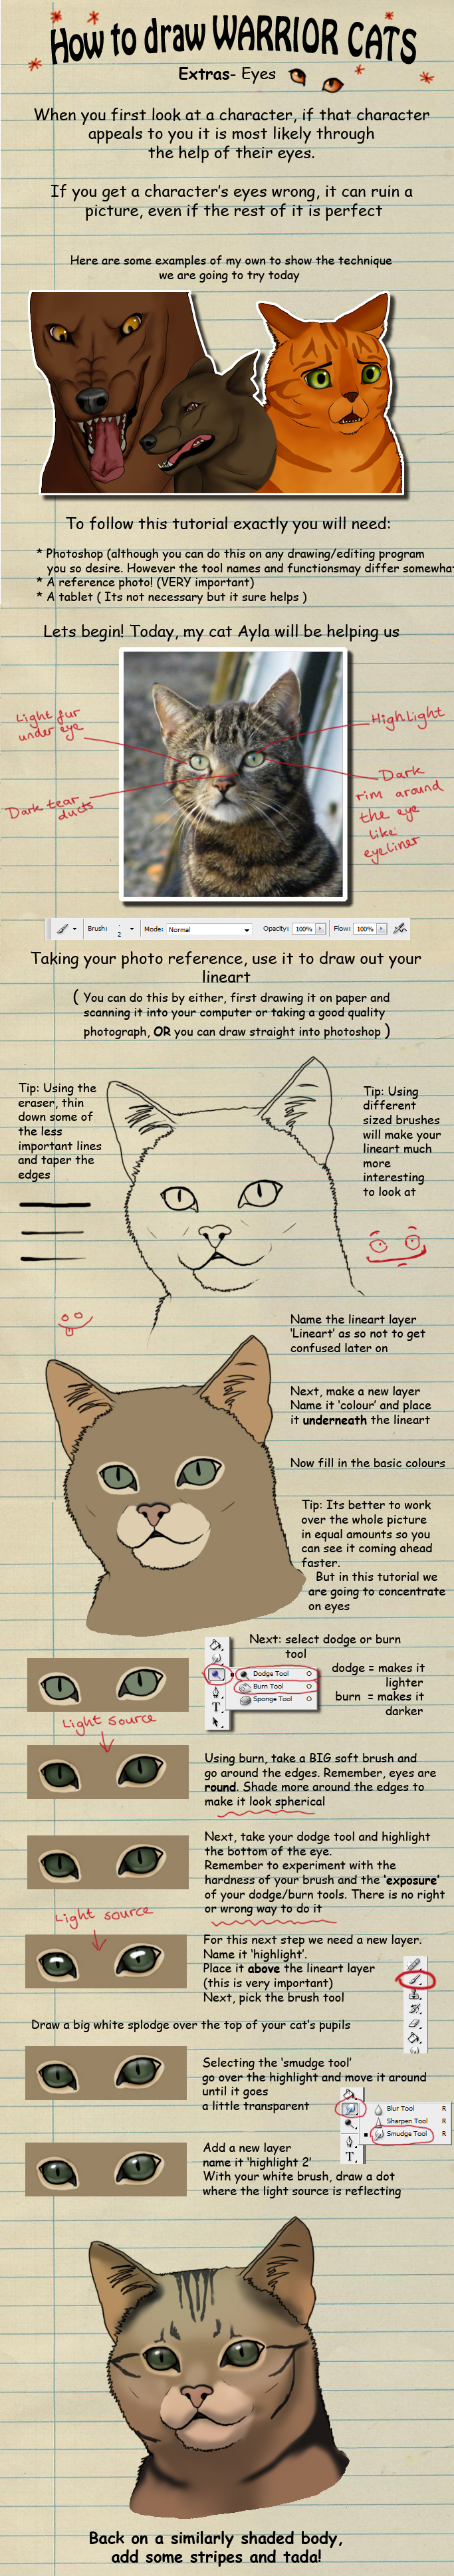 How to draw WARRIOR CATS
Extras- Eyes
When you first look at a character, if that character
appeals to you it is most likely through
the help of their eyes.
If you get a character's eyes wrong, it can ruin a
picture, even if the rest of it is perfect
Here are some examples of my own to show the technique
we are going to try today
To follow this tutorial exactly you will need:
* Photoshop (although you can do this on any drawing/editing program
you so desire. However the tool names and functionsmay differ somewha
* A reference photo! (VERY important)
* A tablet ( Its not necessary but it sure helps )
Lets begin! Today, my cat Ayla will be helping us
Light fur
under eye
HighLight
Dark tear
ducts
Dark
rim around
the eye
like
eyeliner
Brush: 2 Mode: Normal Opacity: 100% Flow: 100%
Taking your photo reference, use it to draw out your
lineart
( You can do this by either, first drawing it on paper and
scanning it into your computer or taking a good quality
photograph, OR you can draw straight into photoshop )
Tip: Using the
eraser, thin
down some of
the less
important lines
and taper the
edges
Tip: Using
different
sized brushes
will make your
lineart much
more
interesting
to look at
Name the lineart layer
'Lineart' as so not to get
confused later on
Next, make a new layer
Name it 'colour' and place
it underneath the lineart
Now fill in the basic colours
Tip: Its better to work
over the whole picture
in equal amounts so you
can see it coming ahead
faster.
But in this tutorial we
are going to concentrate
on eyes
Next: select dodge or burn
tool
Dodge Tool O
Burn Tool O
Sponge Tool O
T
dodge = makes it
lighter
burn = makes it
darker
Light source
Using burn, take a BIG soft brush and
go around the edges. Remember, eyes are
round. Shade more around the edges to
make it look spherical
Next, take your dodge tool and highlight
the bottom of the eye.
Remember to experiment with the
hardness of your brush and the 'exposure'
of your dodge/burn tools. There is no right
or wrong way to do it
Light source
For this next step we need a new layer.
Name it 'highlight'.
Place it above the lineart layer
(this is very important)
Next, pick the brush tool
Draw a big white splodge over the top of your cat's pupils
Selecting the 'smudge tool'
go over the highlight and move it around
until it goes
a little transparent
Blur Tool R
Sharpen Tool R
Smudge Tool R
T
Add a new layer
name it 'highlight 2'
With your white brush, draw a dot
where the light source is reflecting
Back on a similarly shaded body,
add some stripes and tada!